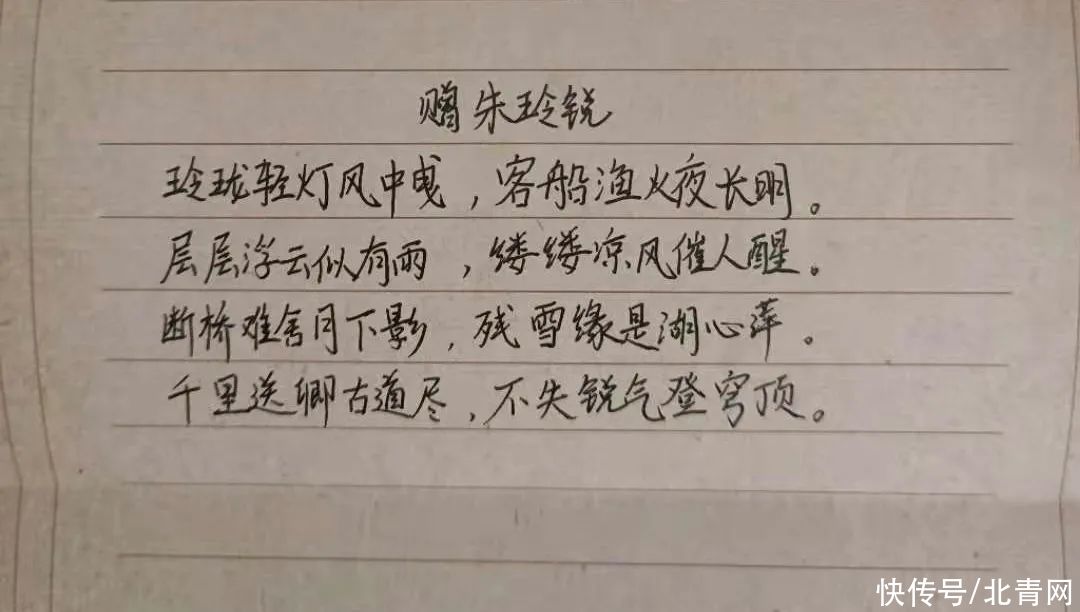 赠朱玲锐
玲珑轻灯风中曳，客船渔火夜长明。
层层浮云似有雨，缕缕凉风催人醒。
断桥难舍月下影，残雪缘是湖心萍。
千里送卿古道尽，不失锐气登穹顶。
快传号/北青网